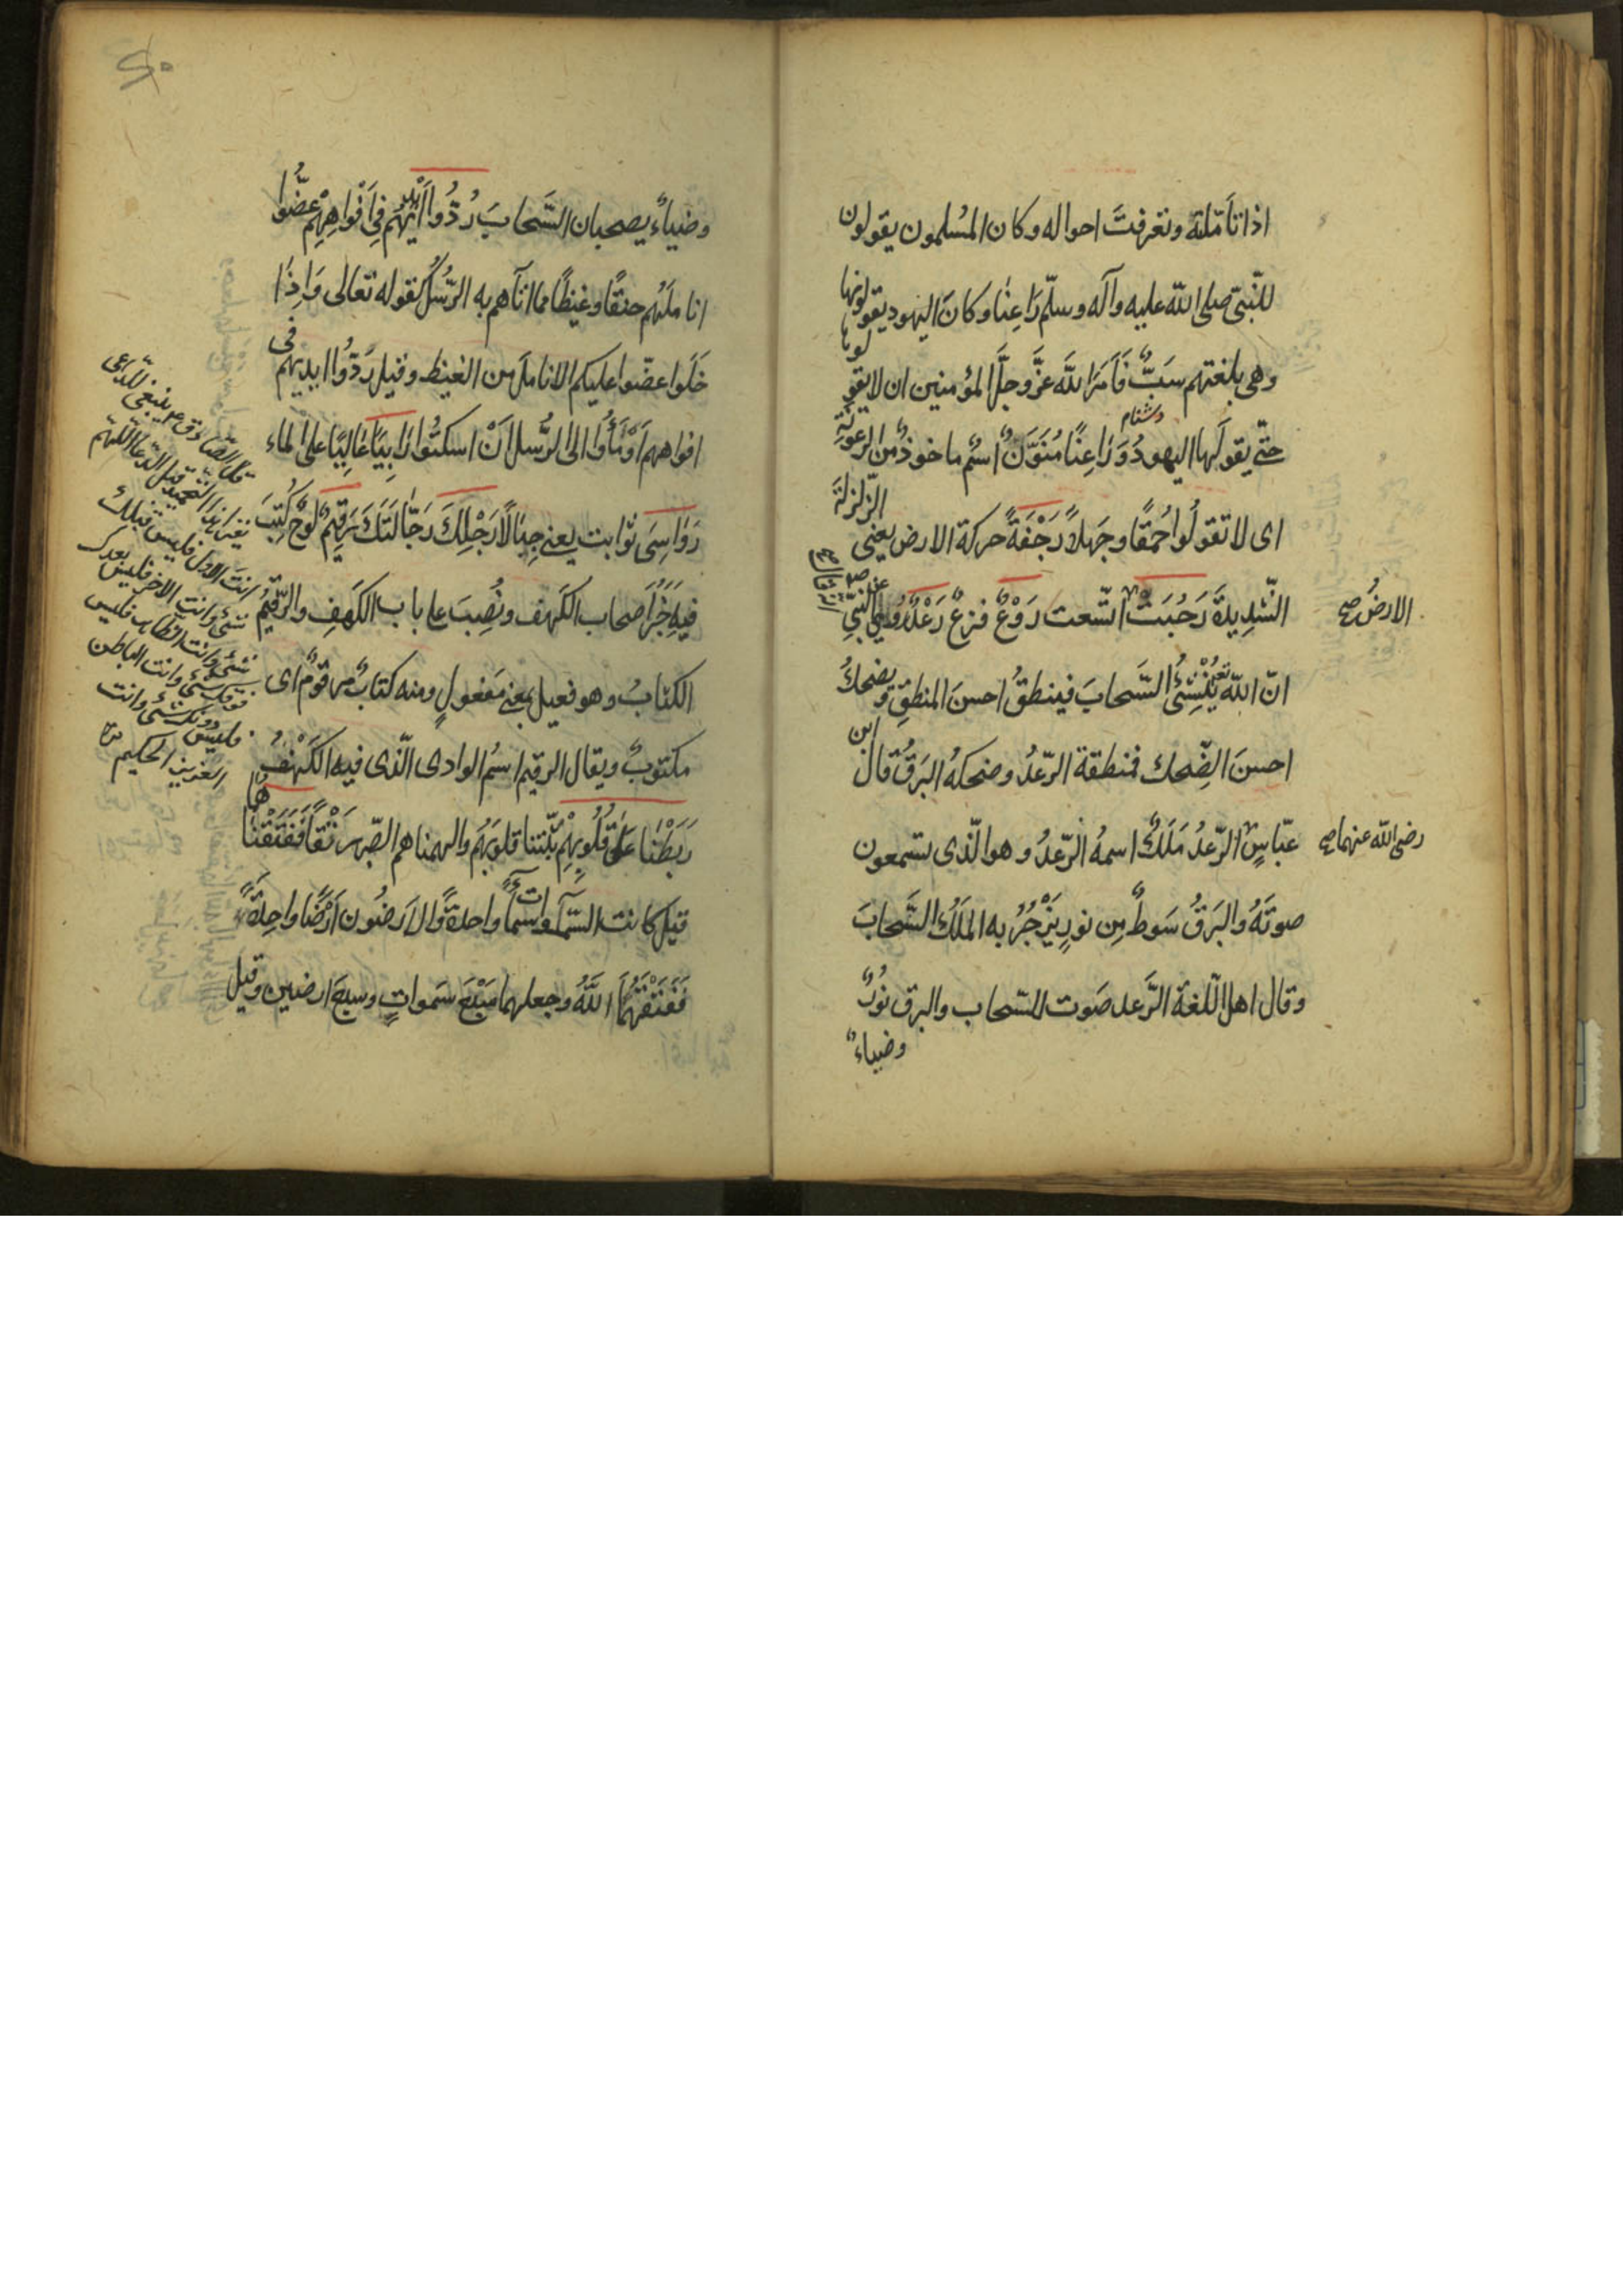 اذا تأملته وتعرفتَ احواله وكان المُسلمون يقولون
للنّبىّ صلى الله عليه وآله وسلّم رَاعِنٰا وكانَ اليهود يقولونها
وهى بلغتهم سَبٌّ فَاَمَرَ اللّه عزَّ وجلَّ المؤمنين ان لا يقولوها
دشنام
حتّى يقولَها اليهودُ وَرَاعِنًا مُنَوَّنٌ اسْمٌ ماخوذٌ من الرعونة
اى لا تقولُوا حُمقًا وجَهلاً رَجْفَةً حركة الارض يعنى الزّلزلة
الشّدِيدةَ رَحُبَتْ اتّسعت رَوْعٌ فزعٌ رَعْدٌ رُوِىَ عن النّبىّ ص
الارضُ صح
انّ اللّه تع يُنْشِئُ السَّحابَ فينطقُ احسنَ المنطِقِ ويضحكُ
احسنَ الضِّحك فمنطقة الرّعدُ وضحكهُ البَرقُ قال ابن
عبّاسٍ الرّعدُ مَلَكٌ اسمهُ الرّعدُ وهو الّذى تسمعون
رضى اللّه عنهما صح
صوتَهُ والبَرقُ سَوطٌ مِن نورٍ يَزْجُرُ به المَلَكُ السَّحابَ
وقال اهل اللّغة الرَّعد صَوت السّحاب والبرق نورٌ
وضياءٌ
وضياءٌ يصحبان السَّحابَ رُدُّوا اَيْدِيَهُم فِى اَفْوَاهِهِمْ عضُّوا
اناملَهُم حنقًا وغيظًا مما اتاهم به الرّسُلُ كقوله تعالى وَاِذَا
خَلَوا عضّوا عليكم الانامل من الغيظ وقيل رَدّوا ايديهم فى
افواههم اَوْمَأُوا الى الرُّسل اَنْ اسكتُوا رَابِيًا عَالِيًا على الماء
رَوٰاسِىَ ثوابت يعنى جبَالاً رَجْلِكَ رَجّالَتَكَ رَقِيمٌ لوحٌ كُتِبَ
فيهِ خَبَرُ اَصحاب الكَهف ونُصِبَ على باب الكَهفِ والرَّقيمُ
الكتابُ وهو فعيل بمعنى مَفعولٍ ومنه كتابٌ مرقومٌ اى
مكتوبٌ ويقال الرقيم اسمُ الوادى الّذى فيه الكَهْفُ
رَبَطْنَا عَلىٰ قُلُوبِهِمْ ثبّتنا قلوبَهُم والهمناهم الصّبر رَتْقًا فَفَتَقْنَاهُمَا
قيل كانت السّمٰوات سمآءً واحدةً والاَرضُون اَرْضًا واحِدَةً
فَفَتَقَهُمَا اللَّهُ وجعلهما سَبْعَ سَمواتٍ وسبعَ ارضين وقيل
قال الصّادق ع ينبغى للدّاعى
انتَ الاوّل فليس قبلك
شئ وانت الاخر فليس بعدك
شئ وانت الظاهر فليس
فوقك شئ وانت الباطن
فليس دونك شئ وانت
العزيز الحكيم